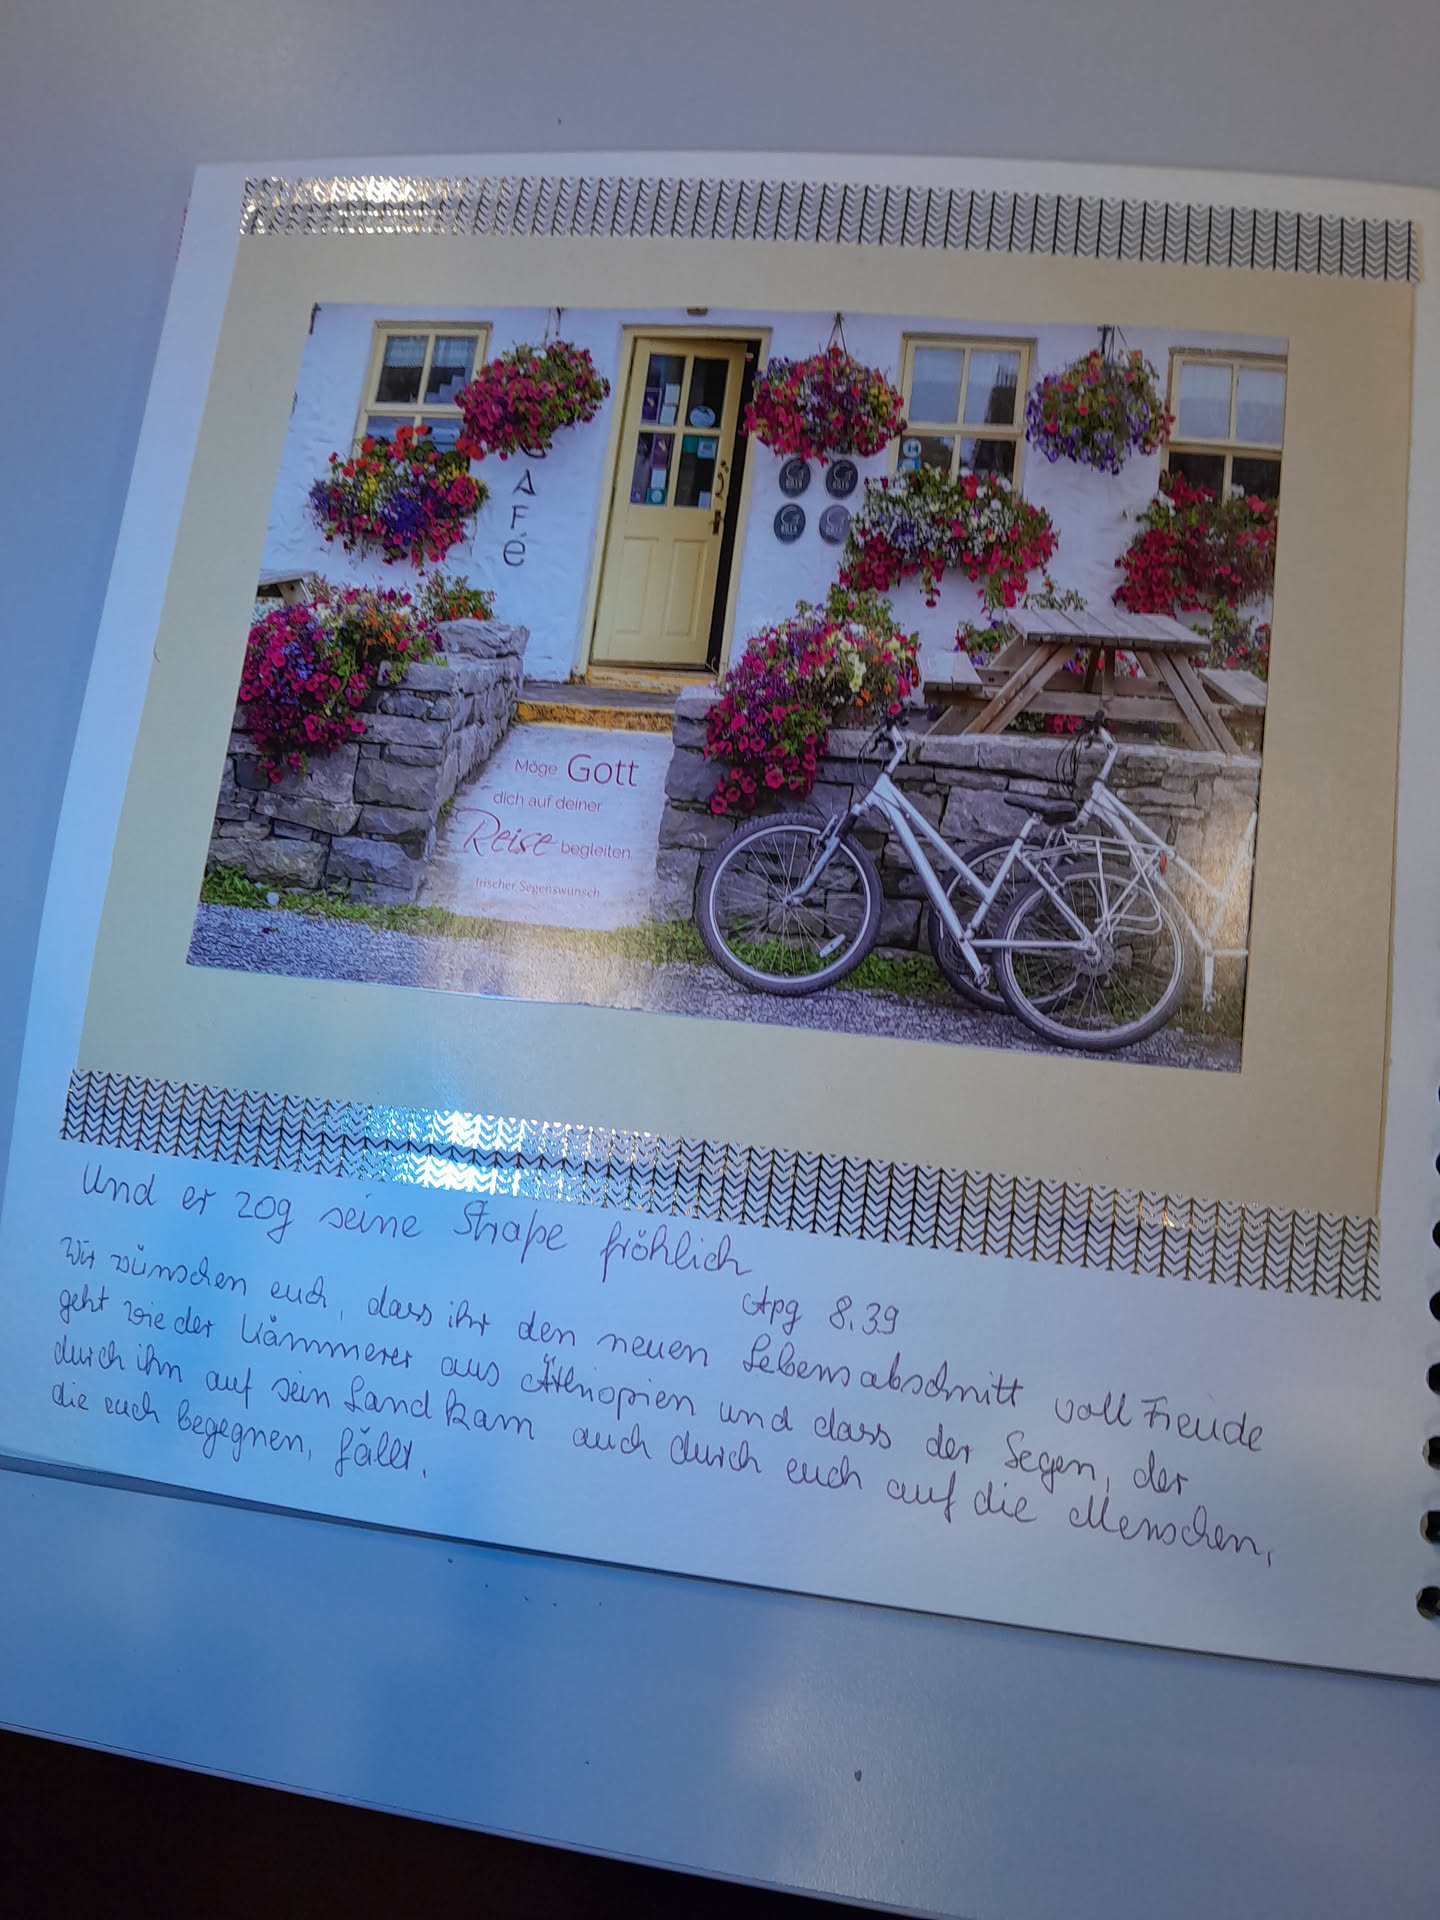 CAFé
Möge Gott
dich auf deiner
Reise begleiten.
Irischer Segenswunsch
Und er zog seine Straße fröhlich
Apg 8,39
Wir wünschen euch, dass ihr den neuen Lebensabschnitt voll Freude
geht wie der Kämmerer aus Äthiopien und dass der Segen, der
durch ihn auf sein Land kam auch durch euch auf die Menschen,
die euch begegnen, fällt.